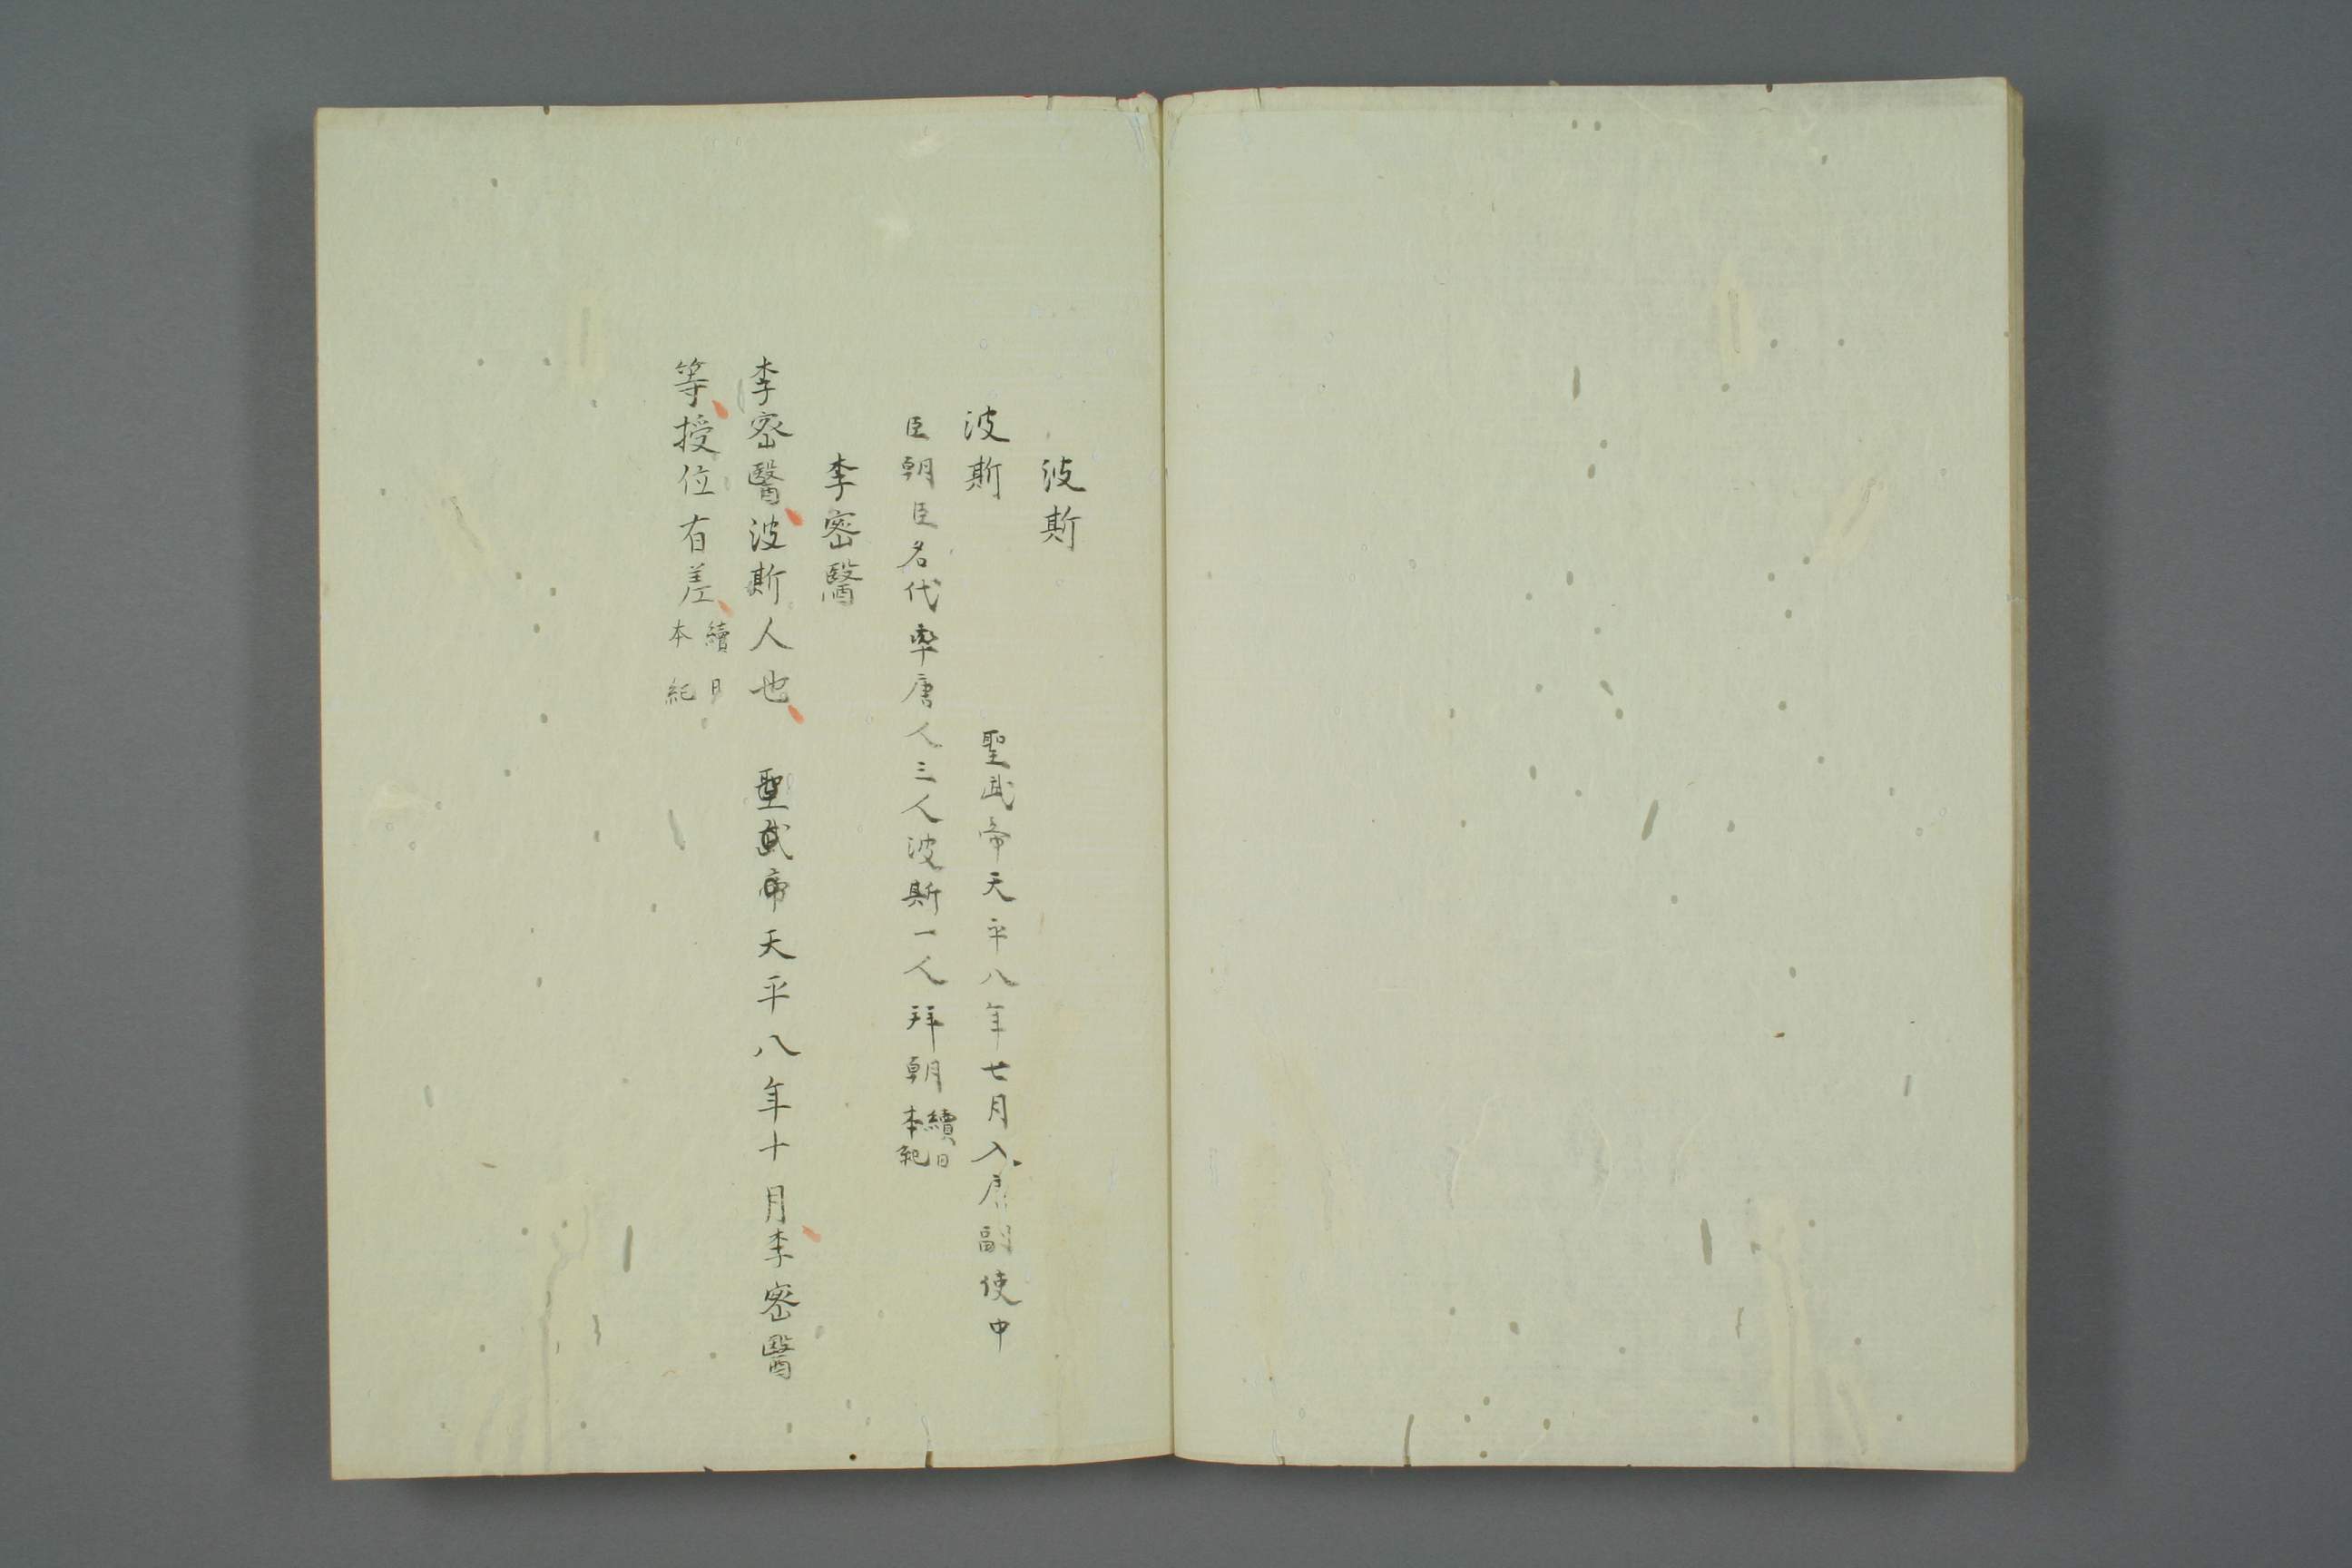 波斯
波斯　　　聖武帝天平八年七月入唐副使中
臣朝臣名代率唐人三人波斯一人拜朝續日本紀
李密醫
李密醫波斯人也　聖武帝天平八年十月李密醫
等授位有差續日本紀